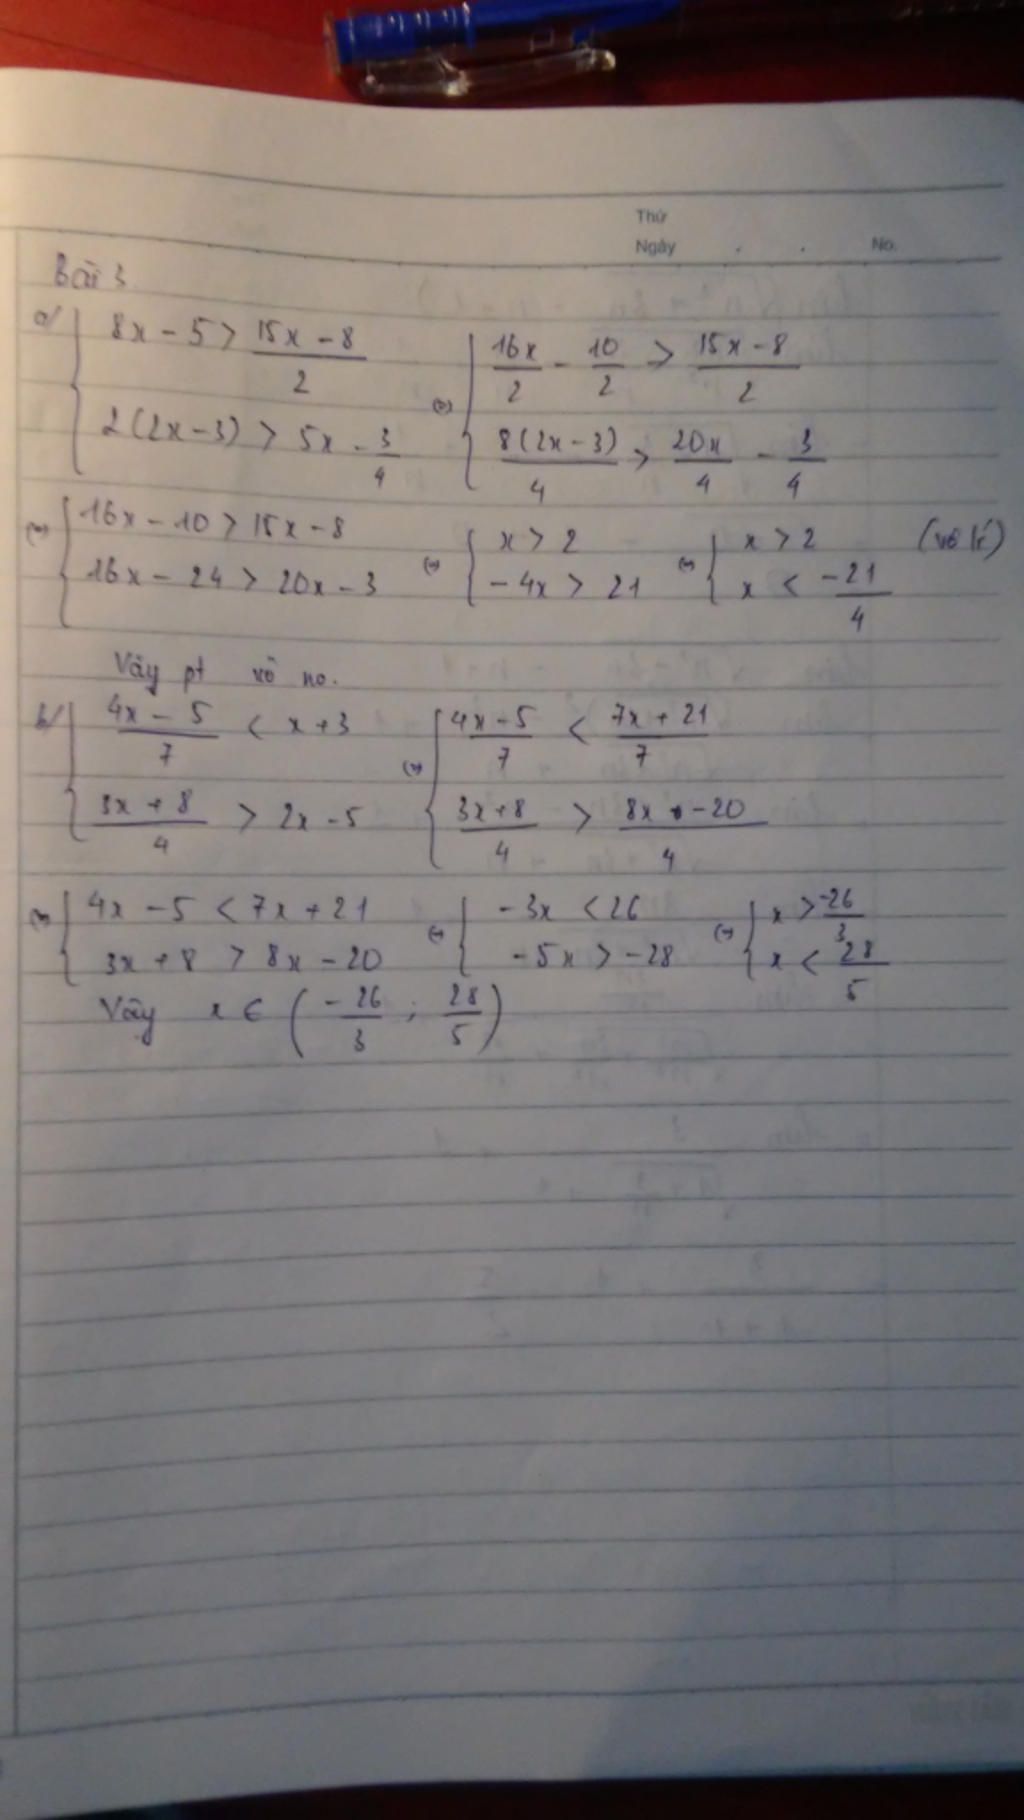 Thứ
Ngày . . No.
Bài 3
a/ { 8x - 5 > (15x - 8)/2 ; 2(2x - 3) > 5x - 3/4 (=) { 16x/2 - 10/2 > (15x - 8)/2 ; 8(2x - 3)/4 > 20x/4 - 3/4
(=) { 16x - 10 > 15x - 8 ; 16x - 24 > 20x - 3 (=) { x > 2 ; -4x > 21 (=) { x > 2 ; x < -21/4 (vô lí)
Vậy pt vô no.
b/ { (4x - 5)/7 < x + 3 ; (3x + 8)/4 > 2x - 5 (=) { (4x - 5)/7 < (7x + 21)/7 ; (3x + 8)/4 > (8x - 20)/4
(=) { 4x - 5 < 7x + 21 ; 3x + 8 > 8x - 20 (=) { -3x < 26 ; -5x > -28 (=) { x > -26/3 ; x < 28/5
Vậy x ∈ (-26/3 ; 28/5)